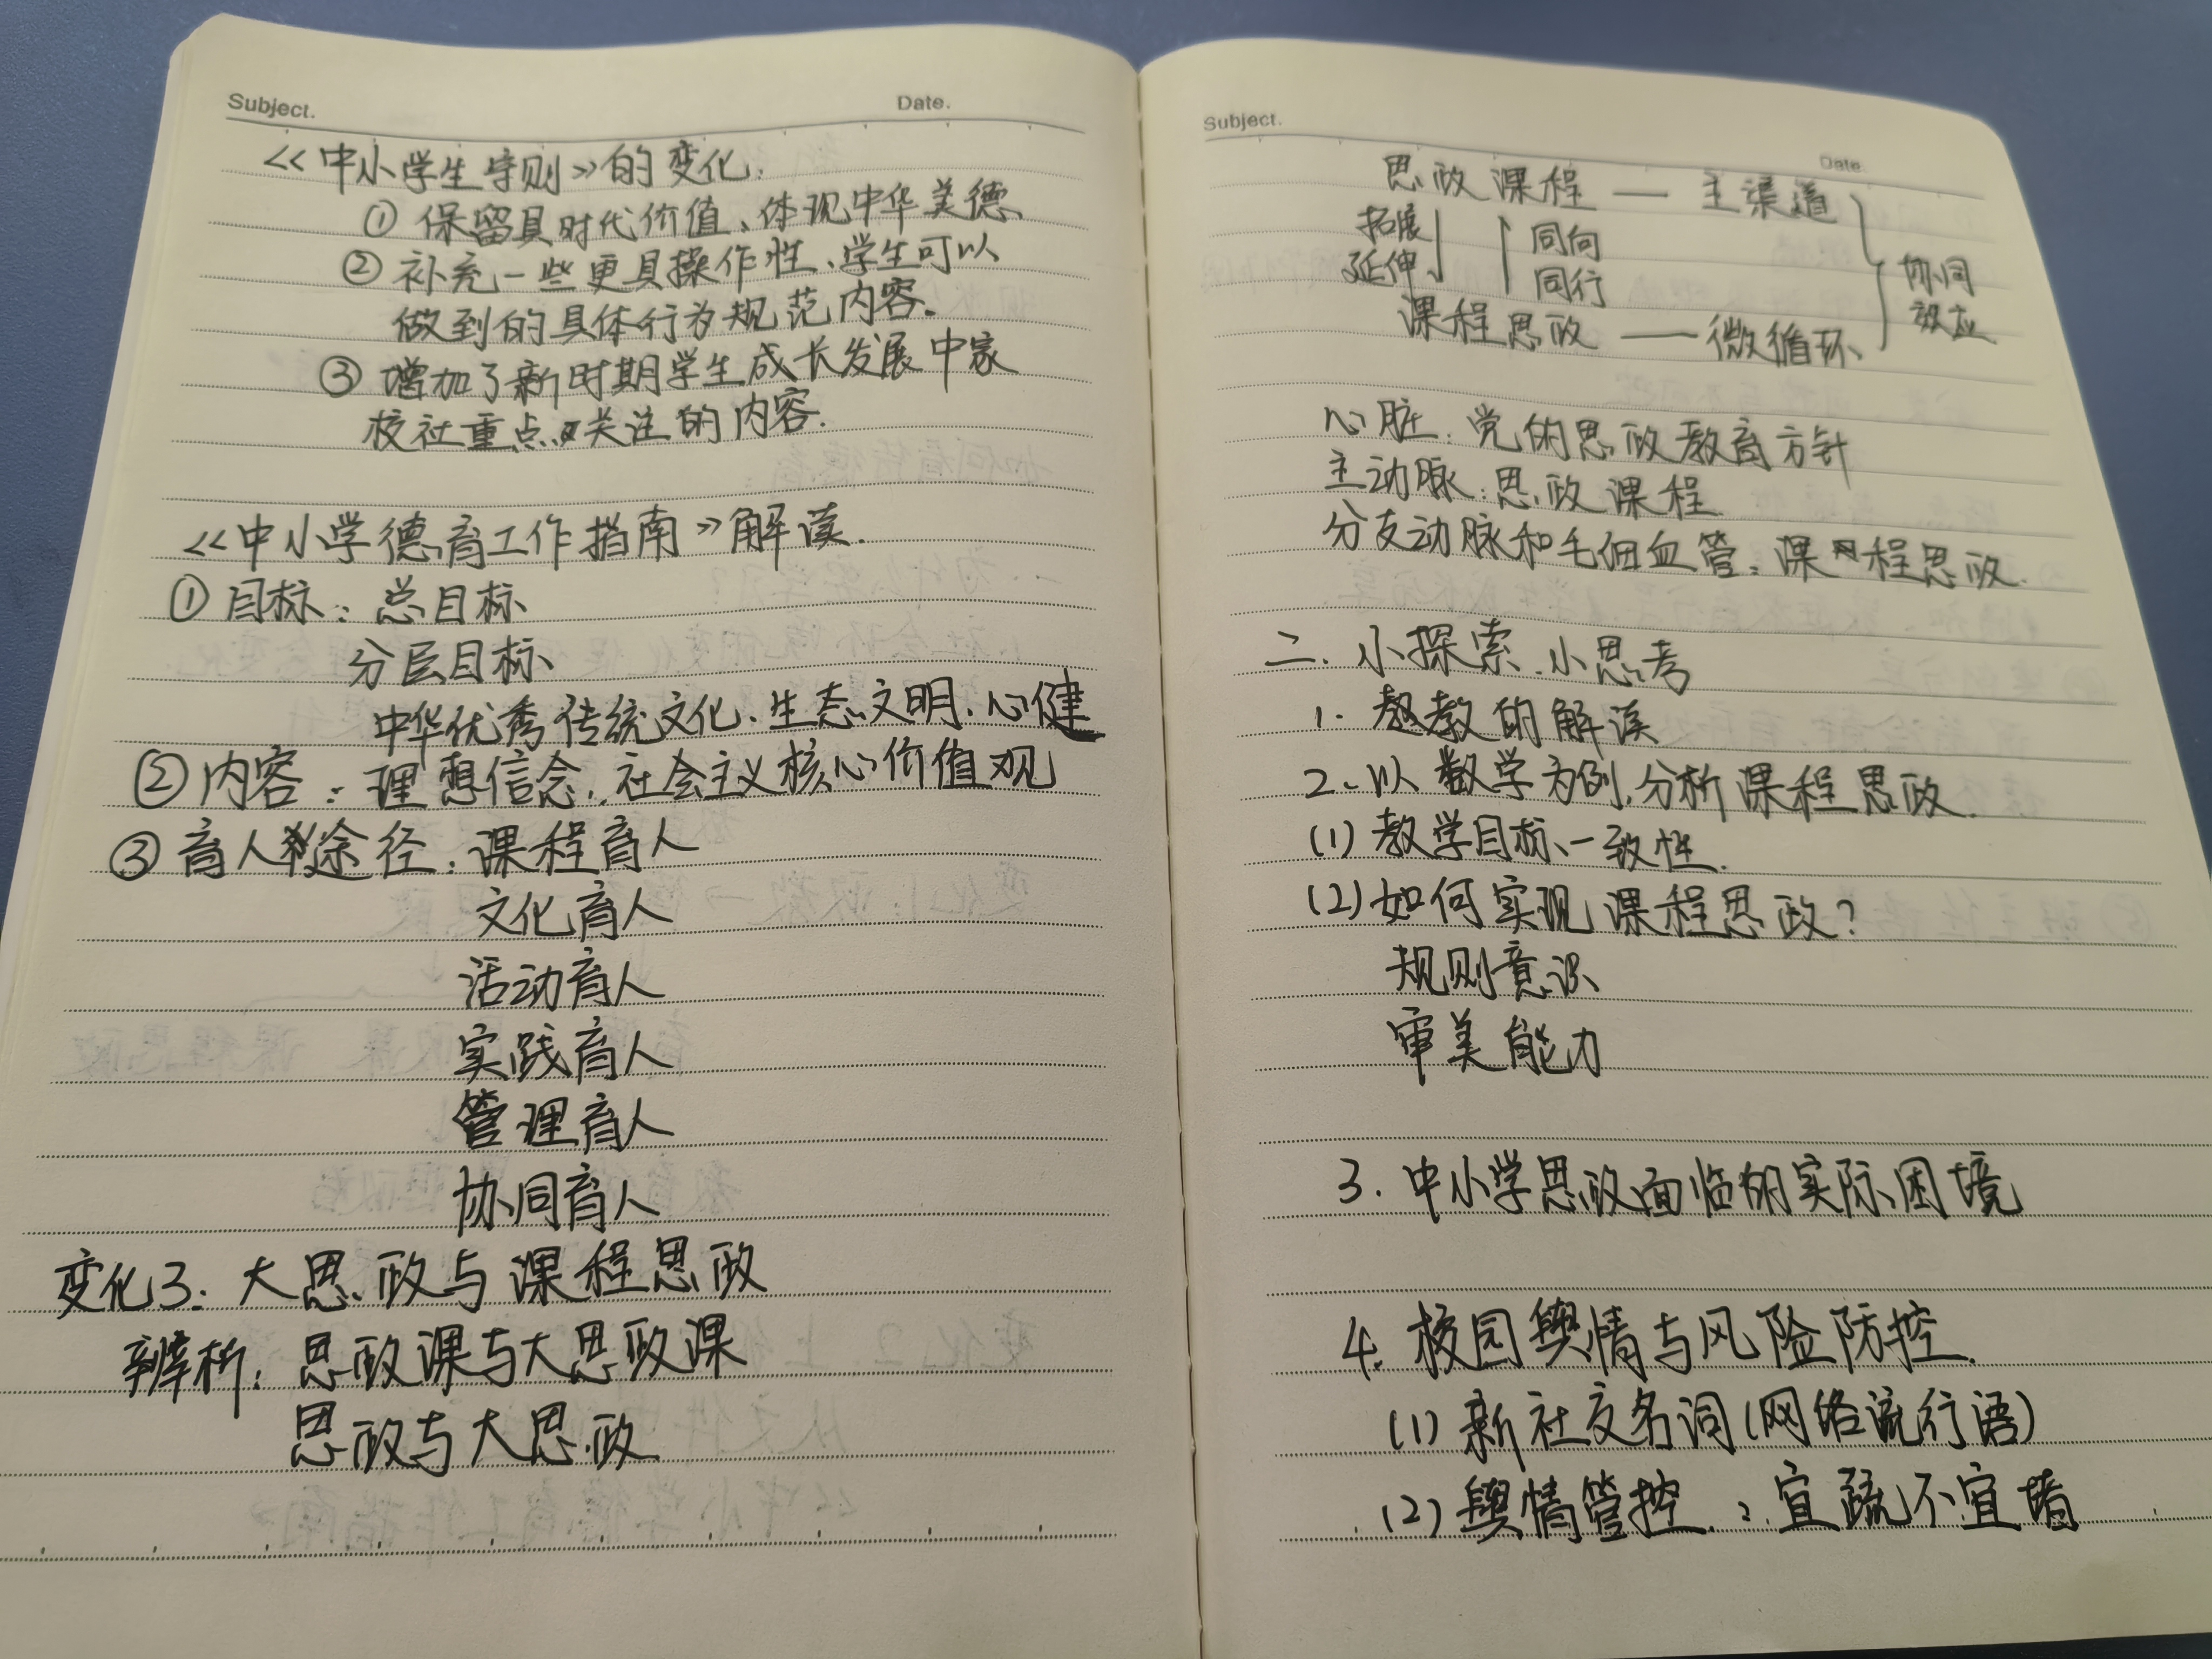 Subject.
Date.
<<中小学生守则>>的变化:
① 保留具时代价值、体现中华美德
② 补充一些更具操作性、学生可以
做到的具体行为规范内容。
③ 增加了新时期学生成长发展中家
校社重点关注的内容.
<<中小学德育工作指南>>解读.
① 目标: 总目标
分层目标
中华优秀传统文化. 生态文明. 心健
② 内容: 理想信念. 社会主义核心价值观
③ 育人途径: 课程育人
文化育人
活动育人
实践育人
管理育人
协同育人
变化3: 大思政与课程思政
辨析: 思政课与大思政课
思政与大思政
Subject.
Date.
思政课程 — 主渠道
拓展 同向
延伸 同行
协同
效应
课程思政 — 微循环
心脏: 党的思政教育方针
主动脉: 思政课程
分支动脉和毛细血管: 课程思政.
二. 小探索.小思考
1. 教的解读
2. 以数学为例,分析课程思政.
(1) 教学目标一致性.
(2) 如何实现课程思政?
规则意识
审美能力
3. 中小学思政面临的实际困境
4. 校园舆情与风险防控.
(1) 新社交名词(网络流行语)
(2) 舆情管控.: 宜疏不宜堵